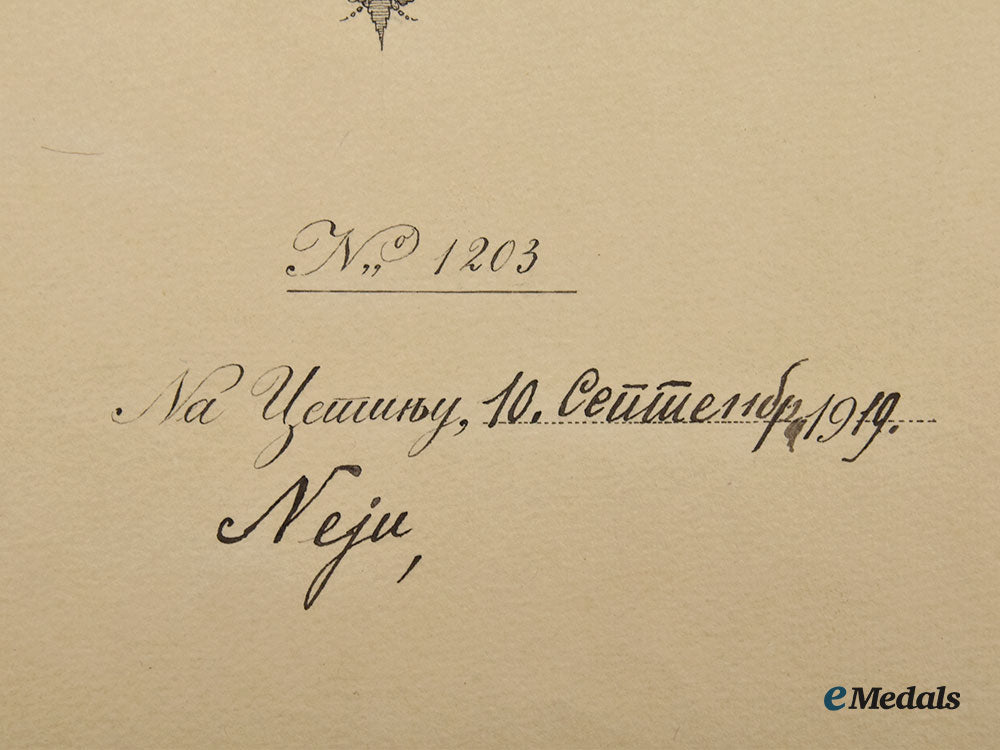 № 1203
На Цетињу, 10. Септембр, 1919.
Nеји,
eMedals